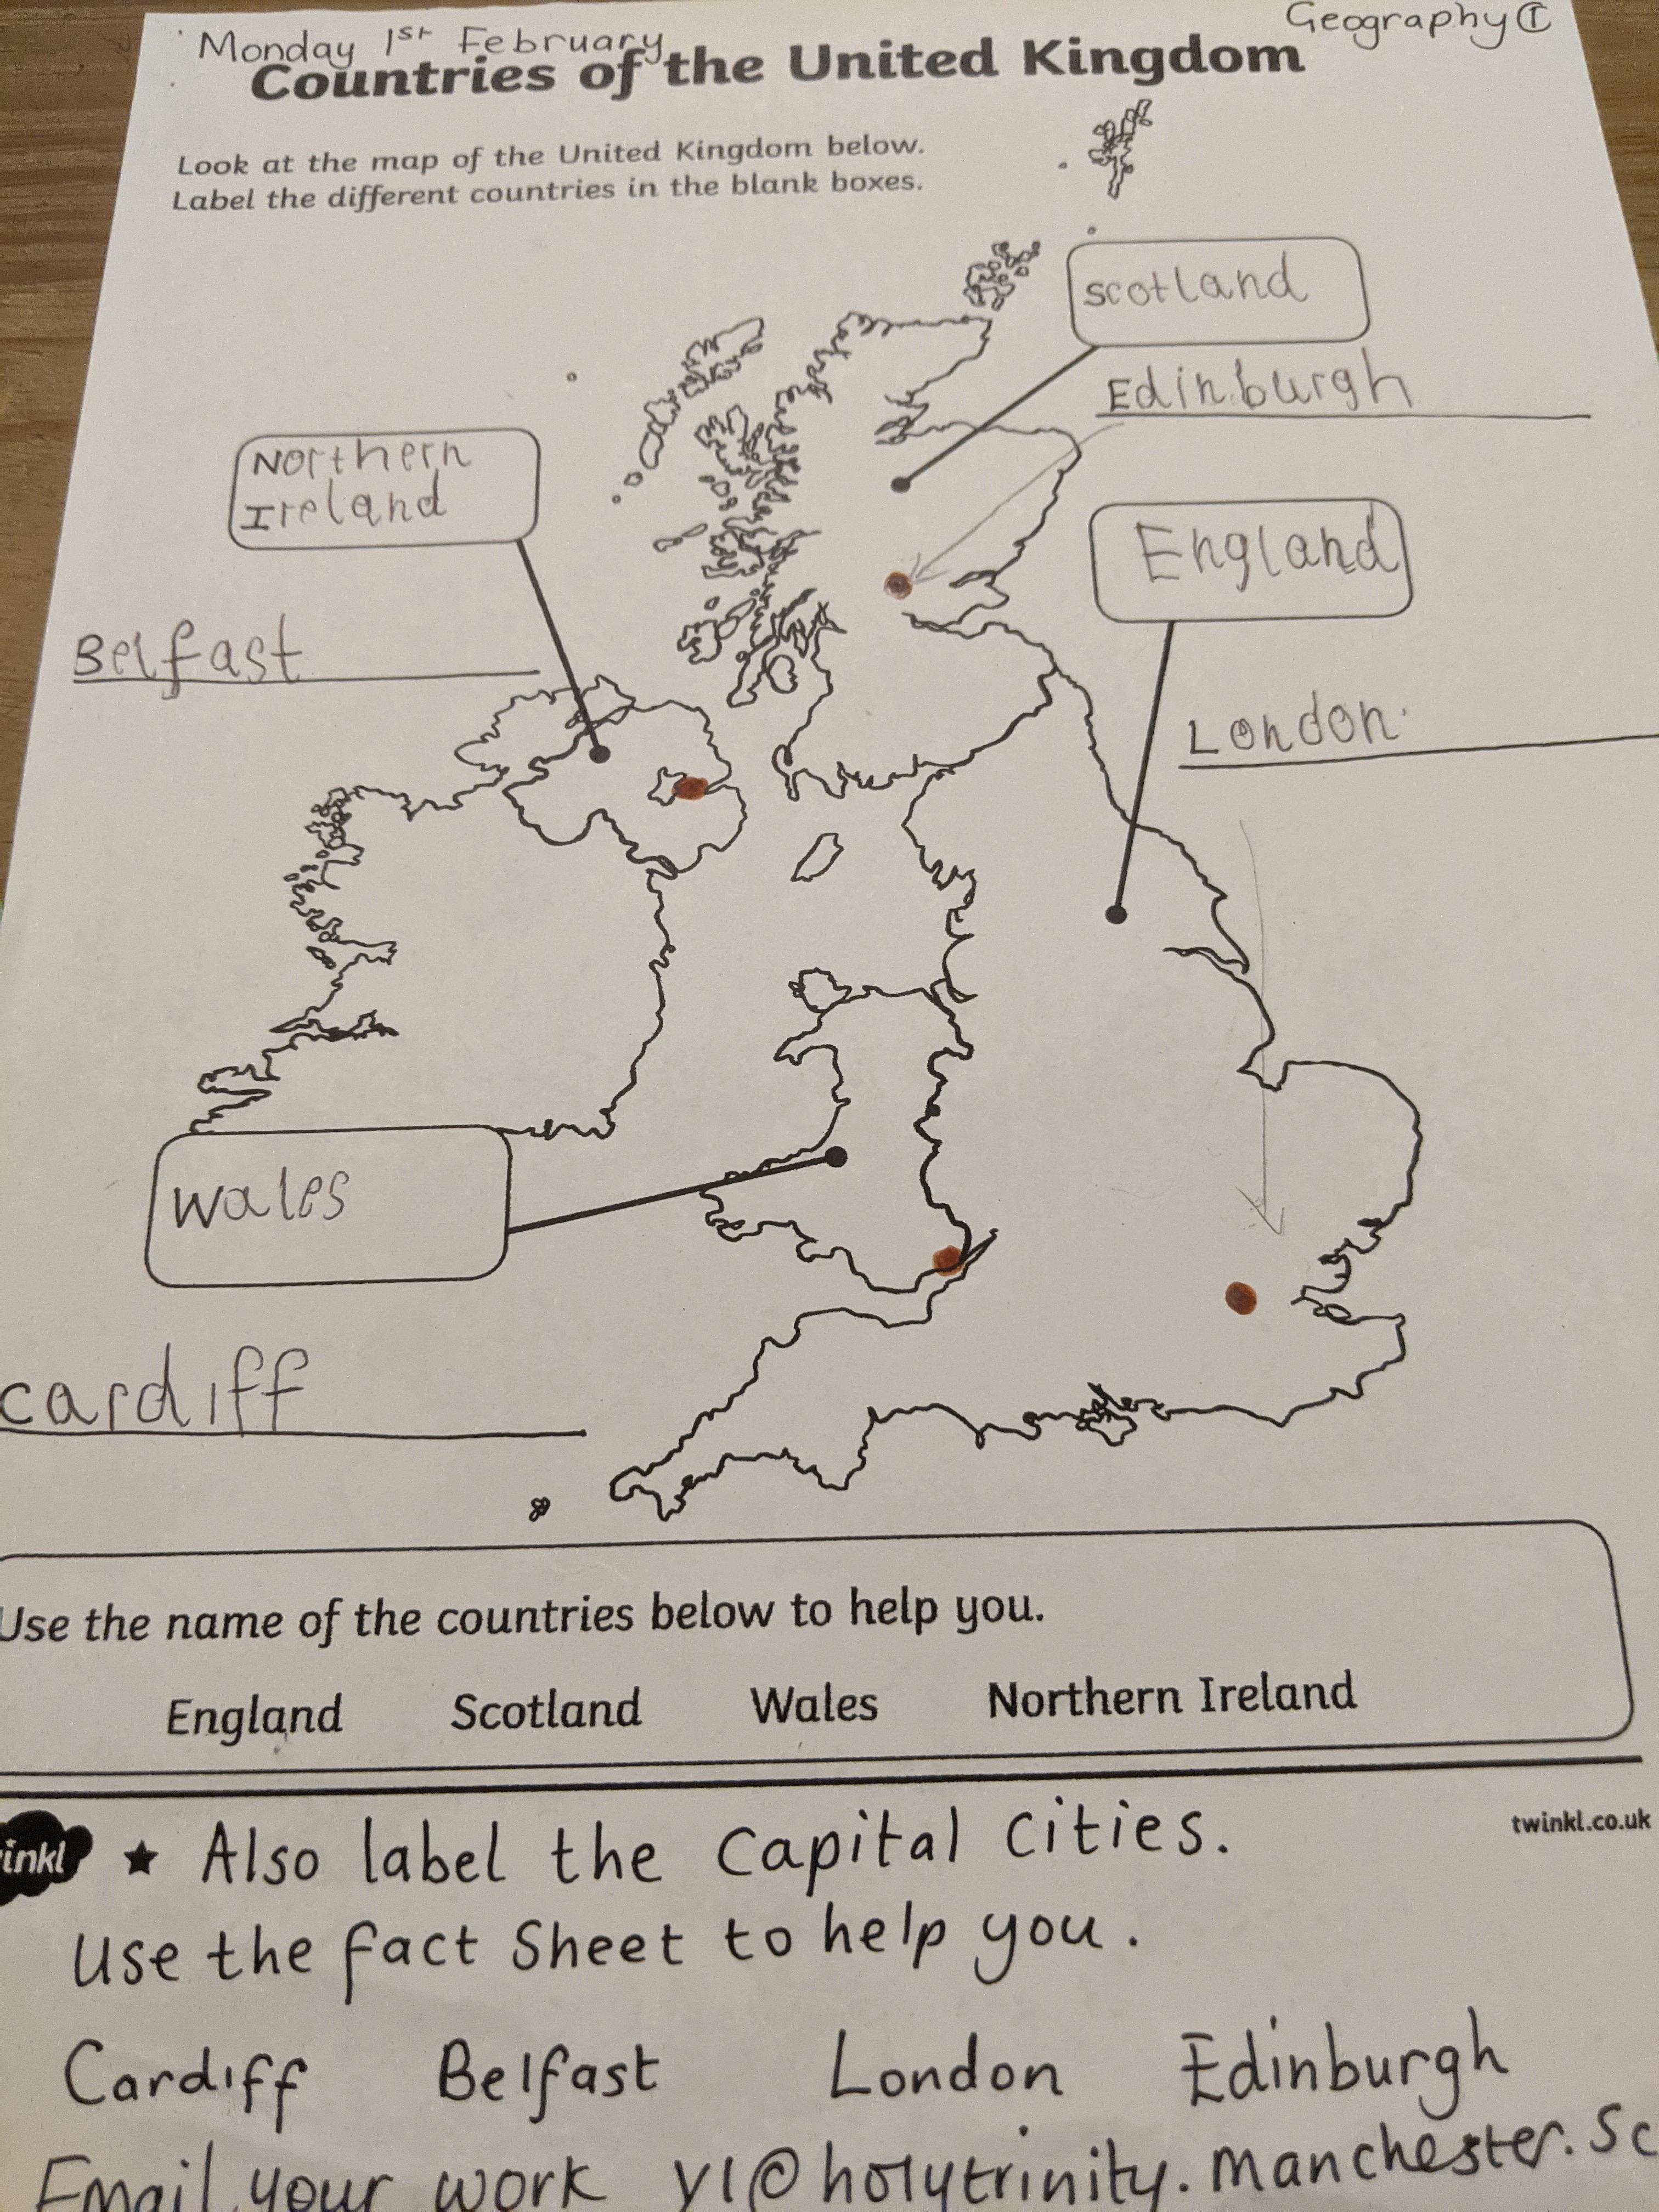 Geography ①
Monday 1st February
Countries of the United Kingdom
Look at the map of the United Kingdom below.
Label the different countries in the blank boxes.
scotland
Edinburgh
Northern
Ireland
England
Belfast
London.
Wales
cardiff
Use the name of the countries below to help you.
England Scotland Wales Northern Ireland
inkl
twinkl.co.uk
★ Also label the capital cities.
Use the fact Sheet to help you.
Cardiff Belfast London Edinburgh
Email your work y1@holytrinity.manchester.sc